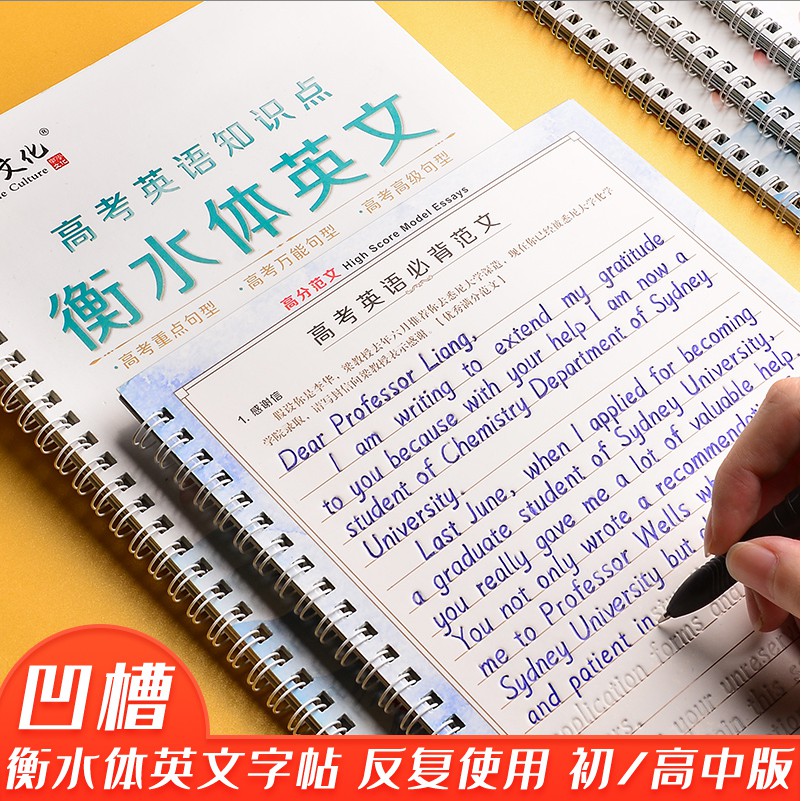 文化®
Culture
高考英语知识点
衡水体英文
·高考重点句型 ·高考万能句型 ·高考高级句型
高分范文 High Score Model Essays
高考英语必背范文
1. 感谢信
假设你是李华，梁教授去年六月推荐你去悉尼大学深造，现在你已经被悉尼大学化学
学院录取，请写封信向梁教授表示感谢。【优秀满分范文】
Dear Professor Liang,
I am writing to extend my gratitude
to you because with your help I am now a
student of Chemistry Department of Sydney
University.
Last June, when I applied for becoming
a graduate student of Sydney University,
you really gave me a lot of valuable help.
You not only wrote a recommendat
me to Professor Wells wh
Sydney University but
and patient in
application forms and
your unreser
in this
凹槽
衡水体英文字帖 反复使用 初/高中版